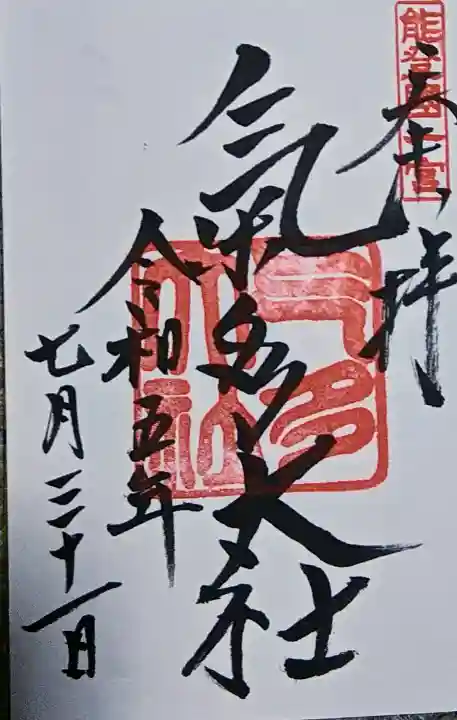 能登國一宮
奉拝
氣多大社
气多大社
令和五年
七月三十一日